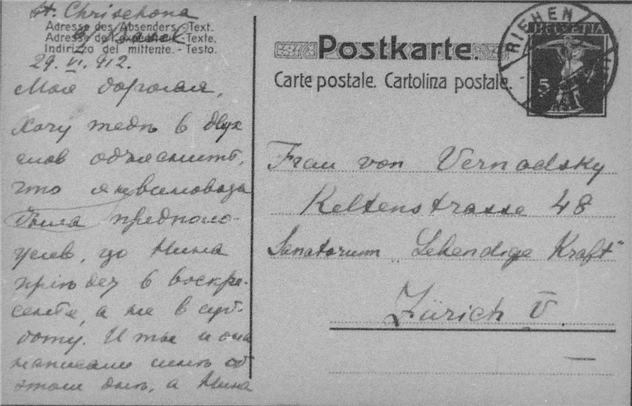 St. Chrischona
Adresse des Absenders. - Text.
Adresse de l'expéditeur. - Texte.
Indirizzo del mittente. - Testo.
29. VI. 912.
Моя дорогая,
Хочу тебѣ в двух
словах объяснить,
что я
была предполо-
Нина
в воскре-
сенье, а не в суб-
боту. И ты и она
написали мне об
этом дне, а Нина
Postkarte.
Carte postale. Cartolina postale.
RIEHEN
HELVETIA
5
Frau von Vernadsky
Keltenstrasse 48
Sanatorium „Lebendige Kraft“
Zürich V.